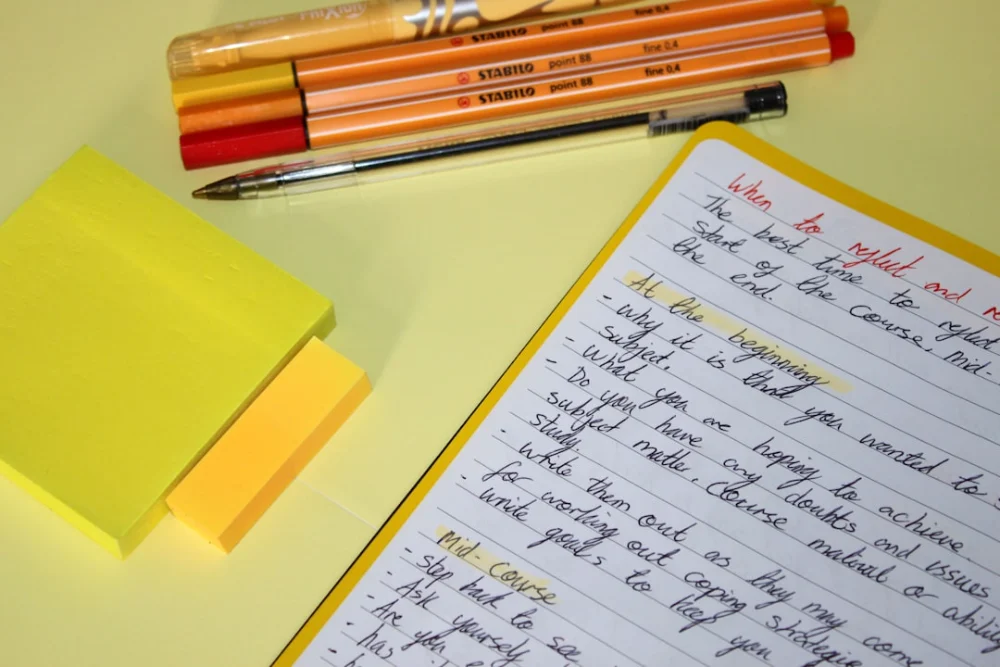 STABILO point 88 fine 0,4
STABILO point 88 fine 0,4
STABILO point 88 fine 0,4
When to reflect and
The best time to reflect
start of the course, mid-
the end.
At the beginning
- why it is that you wanted to
subject.
- What you are hoping to achieve
- Do you have any doubts and issues
subject matter, course material or ability
study.
- Write them out as they may come
for working out coping strategies
- write goals to help you
Mid-Course
- step back to see
- Ask yourself
- Are you
- has